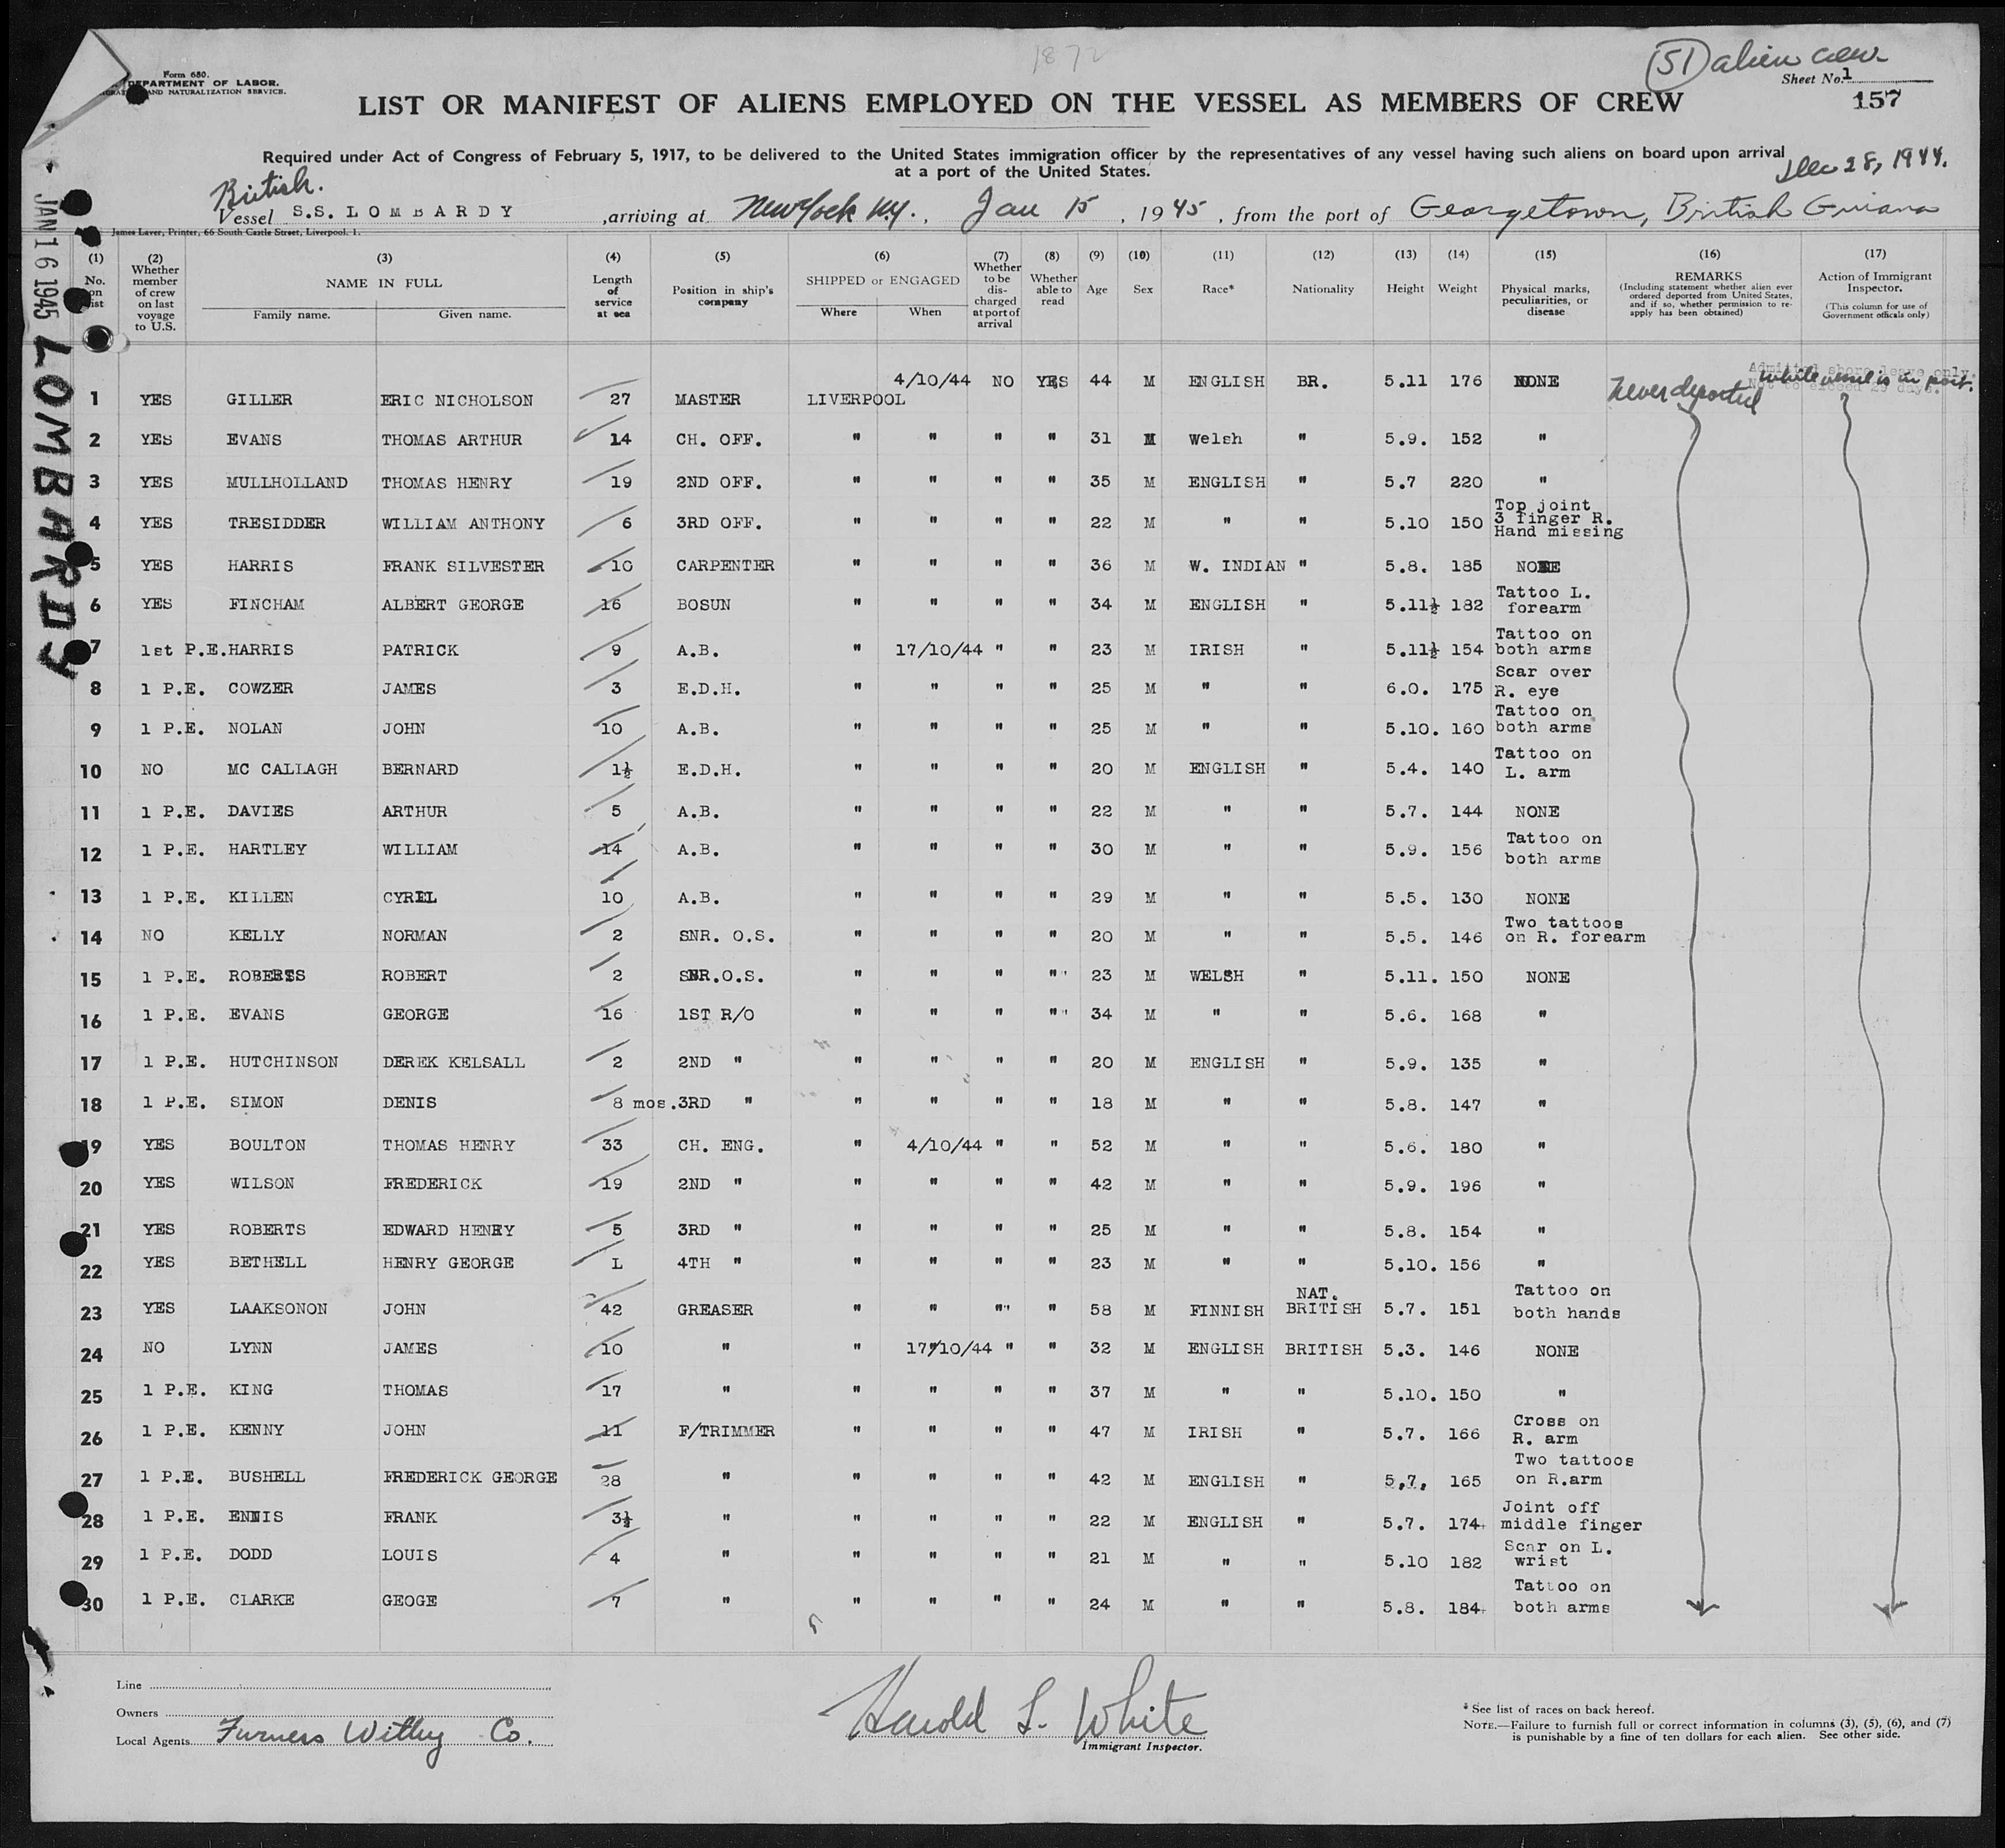 1872
(51) alien crew
Form 680.
DEPARTMENT OF LABOR.
AND NATURALIZATION SERVICE.
Sheet No. 1
157
LIST OR MANIFEST OF ALIENS EMPLOYED ON THE VESSEL AS MEMBERS OF CREW
Required under Act of Congress of February 5, 1917, to be delivered to the United States immigration officer by the representatives of any vessel having such aliens on board upon arrival
at a port of the United States.
Dec 28, 1944.
British.
Vessel S.S. LOMBARDY, arriving at New York N.Y., Jan 15, 1945, from the port of Georgetown, British Guiana
James Laver, Printer, 66 South Castle Street, Liverpool. 1.
JAN 16 1945 LOMBARDY
(1) No. on list (2) Whether member of crew on last voyage to U.S. (3) NAME IN FULL Family name. Given name. (4) Length of service at sea (5) Position in ship's company (6) SHIPPED or ENGAGED Where When (7) Whether to be discharged at port of arrival (8) Whether able to read (9) Age (10) Sex (11) Race* (12) Nationality (13) Height (14) Weight (15) Physical marks, peculiarities, or disease (16) REMARKS (Including statement whether alien ever ordered deported from United States, and if so, whether permission to re-apply has been obtained) (17) Action of Immigrant Inspector. (This column for use of Government officials only)
Admitted shore leave only.
while vessel is in port.
Never deported
1 YES GILLER ERIC NICHOLSON 27 MASTER LIVERPOOL 4/10/44 NO YES 44 M ENGLISH BR. 5.11 176 NONE
2 YES EVANS THOMAS ARTHUR 14 CH. OFF. " " " " 31 M Welsh " 5.9. 152 "
3 YES MULLHOLLAND THOMAS HENRY 19 2ND OFF. " " " " 35 M ENGLISH " 5.7 220 "
4 YES TRESIDDER WILLIAM ANTHONY 6 3RD OFF. " " " " 22 M " " 5.10 150 Top joint 3 finger R. Hand missing
5 YES HARRIS FRANK SILVESTER 10 CARPENTER " " " " 36 M W. INDIAN " 5.8. 185 NONE
6 YES FINCHAM ALBERT GEORGE 16 BOSUN " " " " 34 M ENGLISH " 5.11½ 182 Tattoo L. forearm
7 1st P.E. HARRIS PATRICK 9 A.B. " 17/10/44 " " 23 M IRISH " 5.11½ 154 Tattoo on both arms
8 1 P.E. COWZER JAMES 3 E.D.H. " " " " 25 M " " 6.0. 175 Scar over R. eye
9 1 P.E. NOLAN JOHN 10 A.B. " " " " 25 M " " 5.10. 160 Tattoo on both arms
10 NO MC CALLAGH BERNARD 1½ E.D.H. " " " " 20 M ENGLISH " 5.4. 140 Tattoo on L. arm
11 1 P.E. DAVIES ARTHUR 5 A.B. " " " " 22 M " " 5.7. 144 NONE
12 1 P.E. HARTLEY WILLIAM 14 A.B. " " " " 30 M " " 5.9. 156 Tattoo on both arms
13 1 P.E. KILLEN CYRIL 10 A.B. " " " " 29 M " " 5.5. 130 NONE
14 NO KELLY NORMAN 2 SNR. O.S. " " " " 20 M " " 5.5. 146 Two tattoos on R. forearm
15 1 P.E. ROBERTS ROBERT 2 SNR.O.S. " " " " 23 M WELSH " 5.11. 150 NONE
16 1 P.E. EVANS GEORGE 16 1ST R/O " " " " 34 M " " 5.6. 168 "
17 1 P.E. HUTCHINSON DEREK KELSALL 2 2ND " " " " " 20 M ENGLISH " 5.9. 135 "
18 1 P.E. SIMON DENIS 8 mos. 3RD " " " " " 18 M " " 5.8. 147 "
19 YES BOULTON THOMAS HENRY 33 CH. ENG. " 4/10/44 " " 52 M " " 5.6. 180 "
20 YES WILSON FREDERICK 19 2ND " " " " " 42 M " " 5.9. 196 "
21 YES ROBERTS EDWARD HENRY 5 3RD " " " " " 25 M " " 5.8. 154 "
22 YES BETHELL HENRY GEORGE L 4TH " " " " " 23 M " " 5.10. 156 "
23 YES LAAKSONON JOHN 42 GREASER " " " " 58 M FINNISH NAT. BRITISH 5.7. 151 Tattoo on both hands
24 NO LYNN JAMES 10 " " 17/10/44 " " 32 M ENGLISH BRITISH 5.3. 146 NONE
25 1 P.E. KING THOMAS 17 " " " " " 37 M " " 5.10. 150 "
26 1 P.E. KENNY JOHN 11 F/TRIMMER " " " " 47 M IRISH " 5.7. 166 Cross on R. arm
27 1 P.E. BUSHELL FREDERICK GEORGE 28 " " " " " 42 M ENGLISH " 5,7, 165 Two tattoos on R.arm
28 1 P.E. ENNIS FRANK 3½ " " " " " 22 M ENGLISH " 5.7. 174 Joint off middle finger
29 1 P.E. DODD LOUIS 4 " " " " " 21 M " " 5.10 182 Scar on L. wrist
30 1 P.E. CLARKE GEOGE 7 " " " " " 24 M " " 5.8. 184 Tattoo on both arms
Line
Owners
Local Agents Furness Withy Co.
Harold L. White
Immigrant Inspector.
* See list of races on back hereof.
NOTE.—Failure to furnish full or correct information in columns (3), (5), (6), and (7)
is punishable by a fine of ten dollars for each alien. See other side.